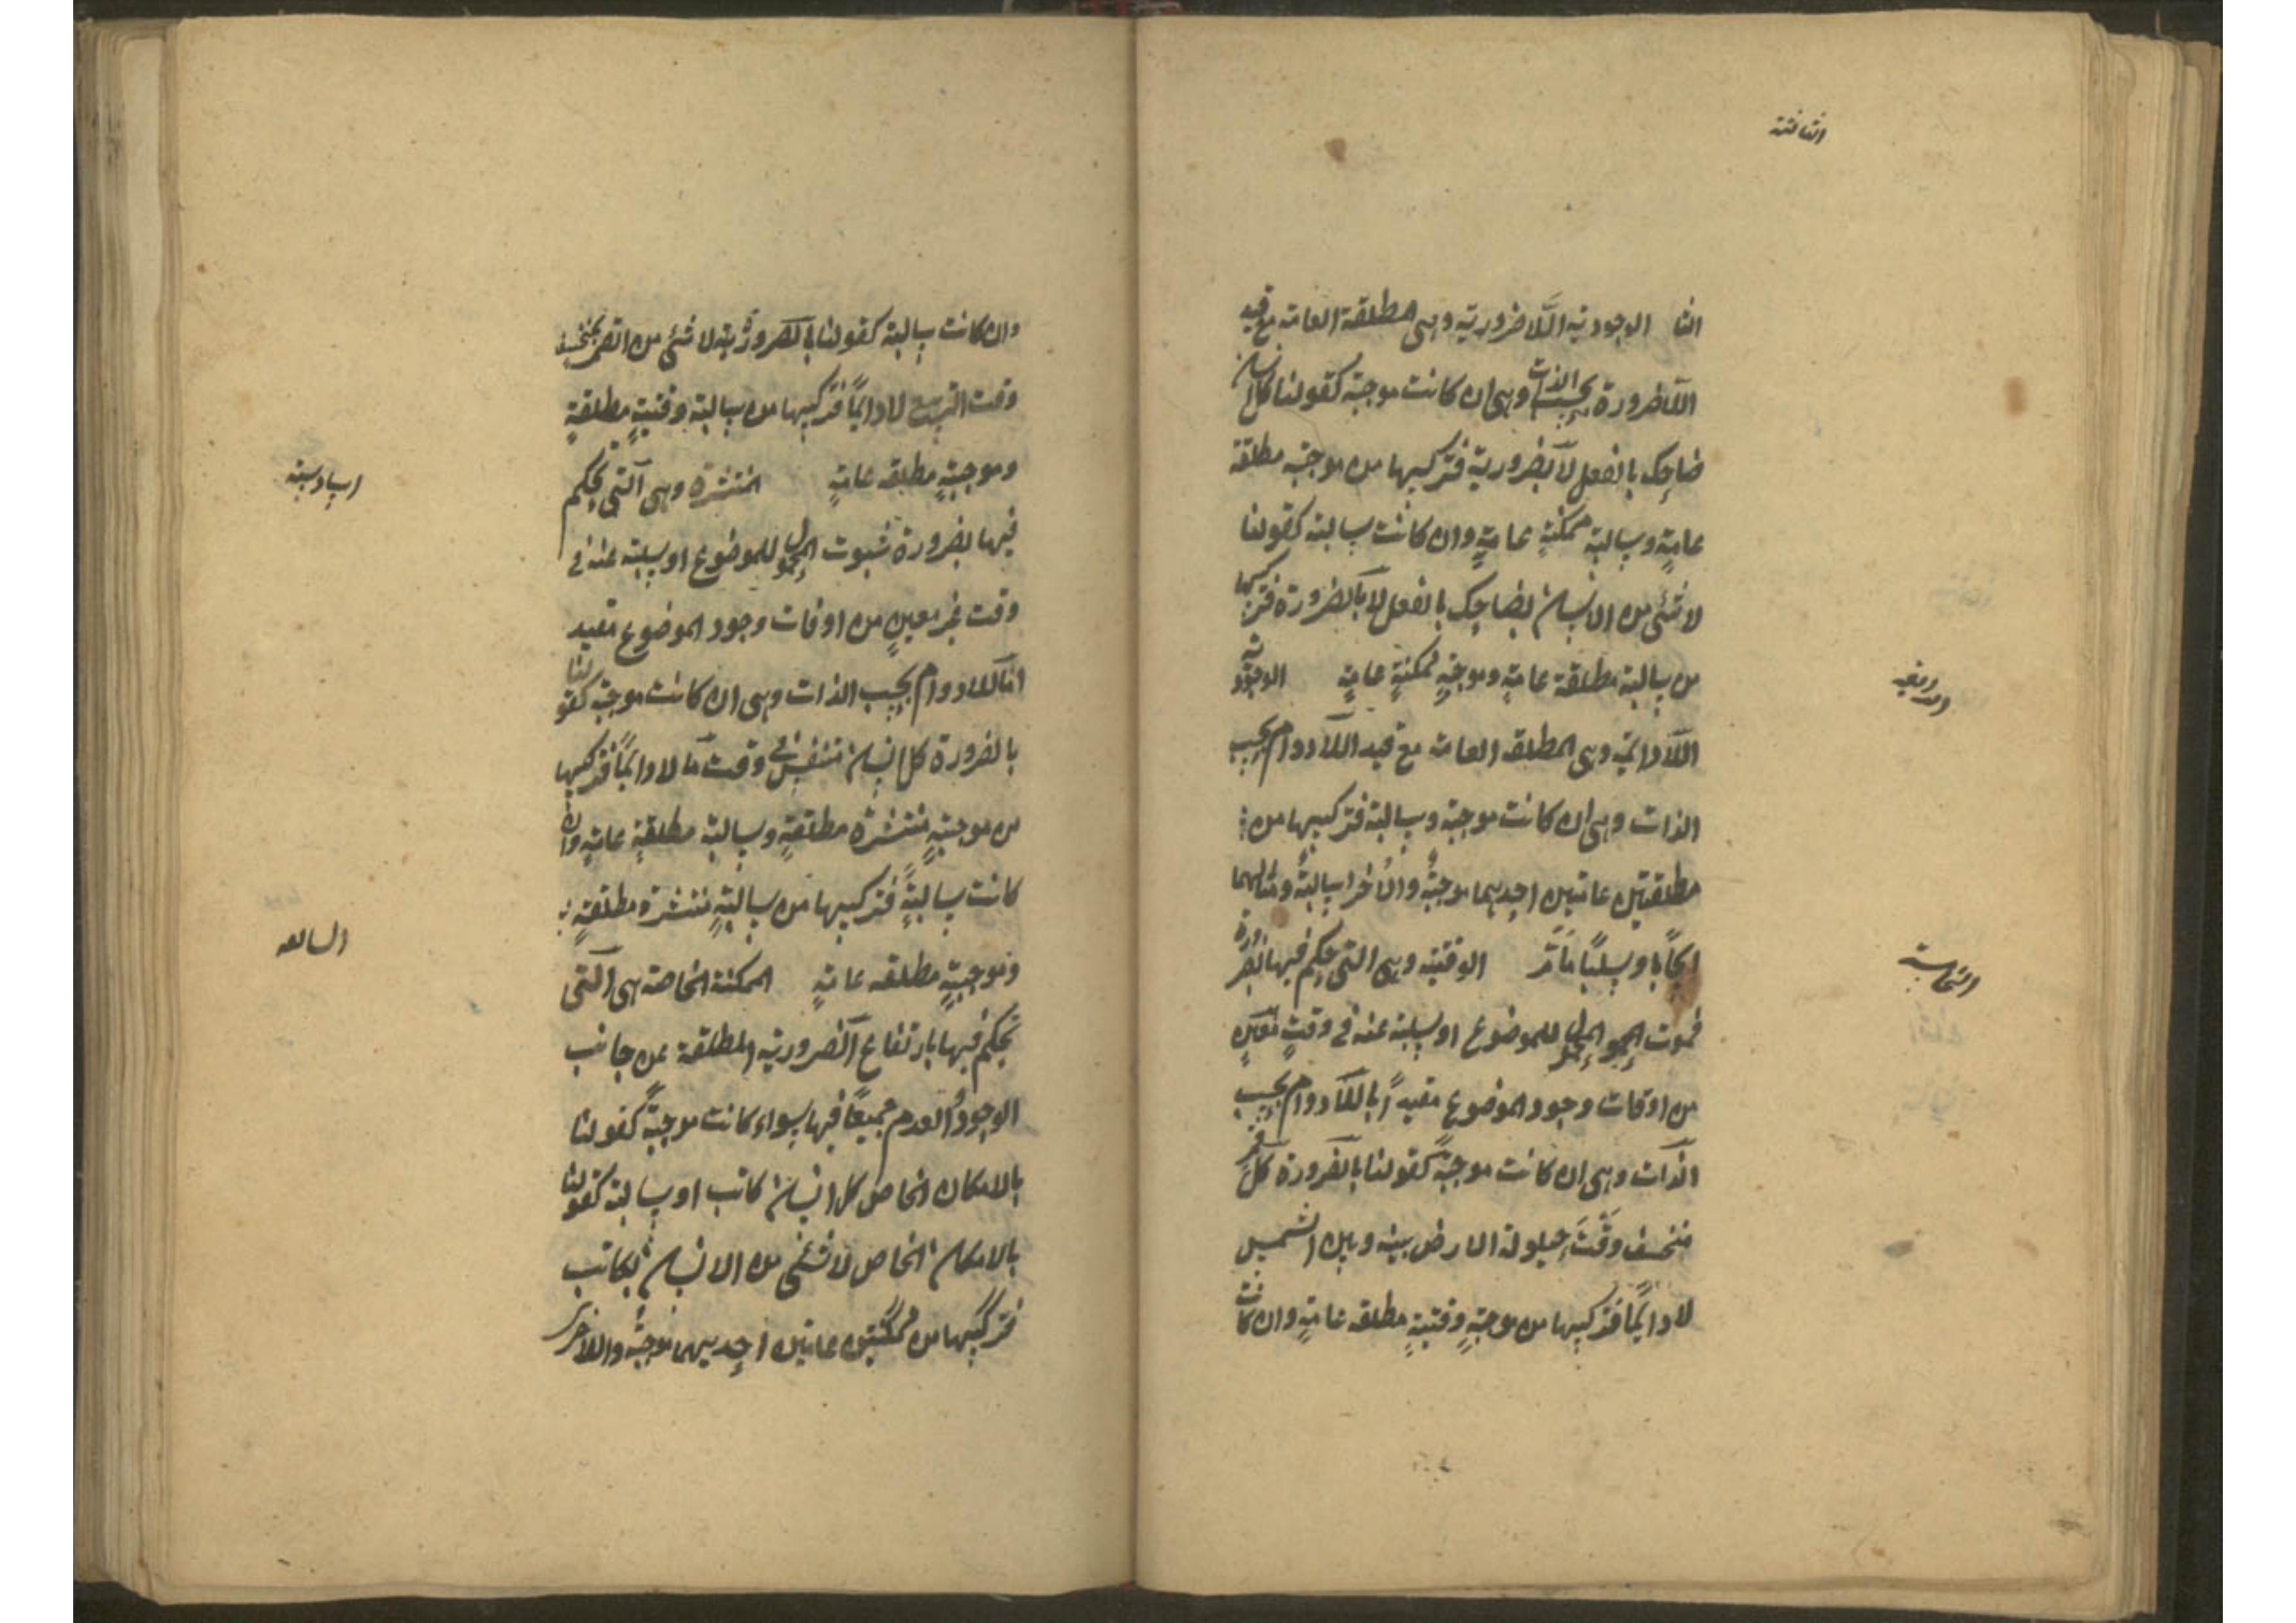 الثالثة
الثا الوجودية اللاضرورية وهى المطلقة العامة مع قيد
اللاضرورة بحسب الذات وهى ان كانت موجبة كقولنا كل انسان
ضاحك بالفعل لا بالضرورية فتركيبها من موجبة مطلقة
عامة وسالبة ممكنة عامة وان كانت سالبة كقولنا
لا شئ من الانسان بضاحك بالفعل لا بالضرورة فتركيبها
من سالبة مطلقة عامة وموجبة ممكنة عامة الوجودية
الرابعة
اللادائمة وهى المطلقة العامة مع قيد اللادوام بحسب
الذات وهى ان كانت موجبة وسالبة فتركيبها من
مطلقتين عامتين احديهما موجبة والاخرا سالبة ومثالهما
ايجابا وسلبا ما مر الوقتية وهى التى حكم فيها بالضرورة
الخامسة
للموضوع او سلبه عنه فى وقت معين
من اوقات وجود الموضوع مقيدا باللادوام بحسب
الذات وهى ان كانت موجبة كقولنا بالضرورة كل قمر
منخسف وقت حيلولة الارض بينه وبين الشمس
لا دائما فتركيبها من موجبة وقتية مطلقة عامة وان كانت
وان كانت سالبة كقولنا بالضرورية لا شئ من القمر بمنخسف
وقت التربيع لا دائما فتركيبها من سالبة وقتية مطلقة
وموجبة مطلقة عامة المنتشرة وهى التى حكم
السادسة
فيها بضرورة ثبوت المحمول للموضوع او سلبه عنه فى
وقت غير معين من اوقات وجود الموضوع مقيد
اللادوام بحسب الذات وهى ان كانت موجبة كقولنا
بالضرورة كل انسان متنفس فى وقت ما لا دائما فتركيبها
من موجبة منتشرة مطلقة وسالبة مطلقة عامة وان
كانت سالبة فتركيبها من سالبة منتشرة مطلقة
وموجبة مطلقة عامة الممكنة الخاصة هى التى
السابعه
حكم فيها بارتفاع الضرورية المطلقة عن جانب
الوجود والعدم جميعا فيها سواء كانت موجبة كقولنا
بالامكان الخاص كل انسان كاتب او سالبة كقولنا
بالامكان الخاص لا شئ من الانسان بكاتب
فتركيبها من ممكنتين عامتين احديهما موجبة والاخرى